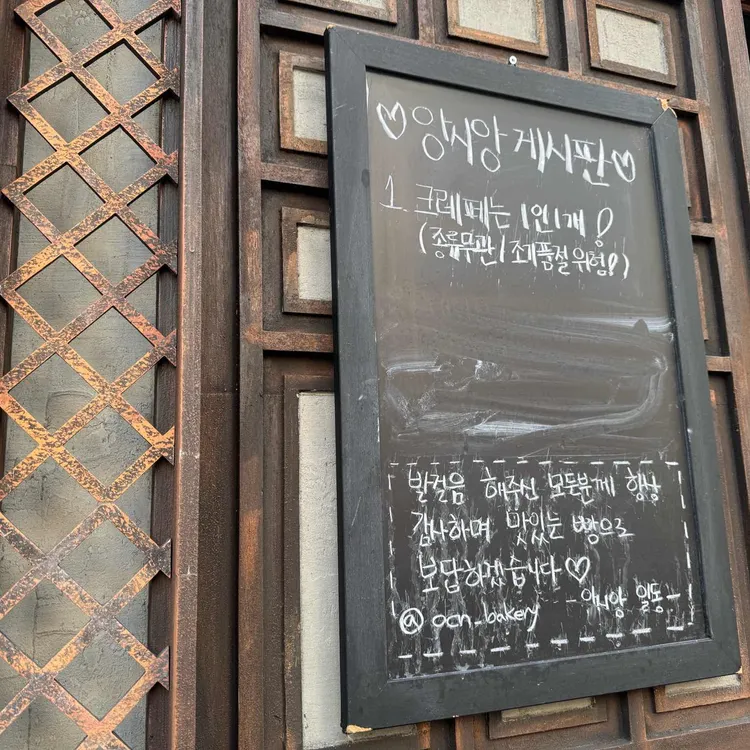 ♡앙시앙 게시판♡
1. 크레페는 1인1개!
(종류무관 / 조기품절 위험!)
발걸음 해주신 모든분께 항상
감사하며 맛있는 빵으로
보답하겠습니다♡
-앙시앙 일동-
@ocn_bakery